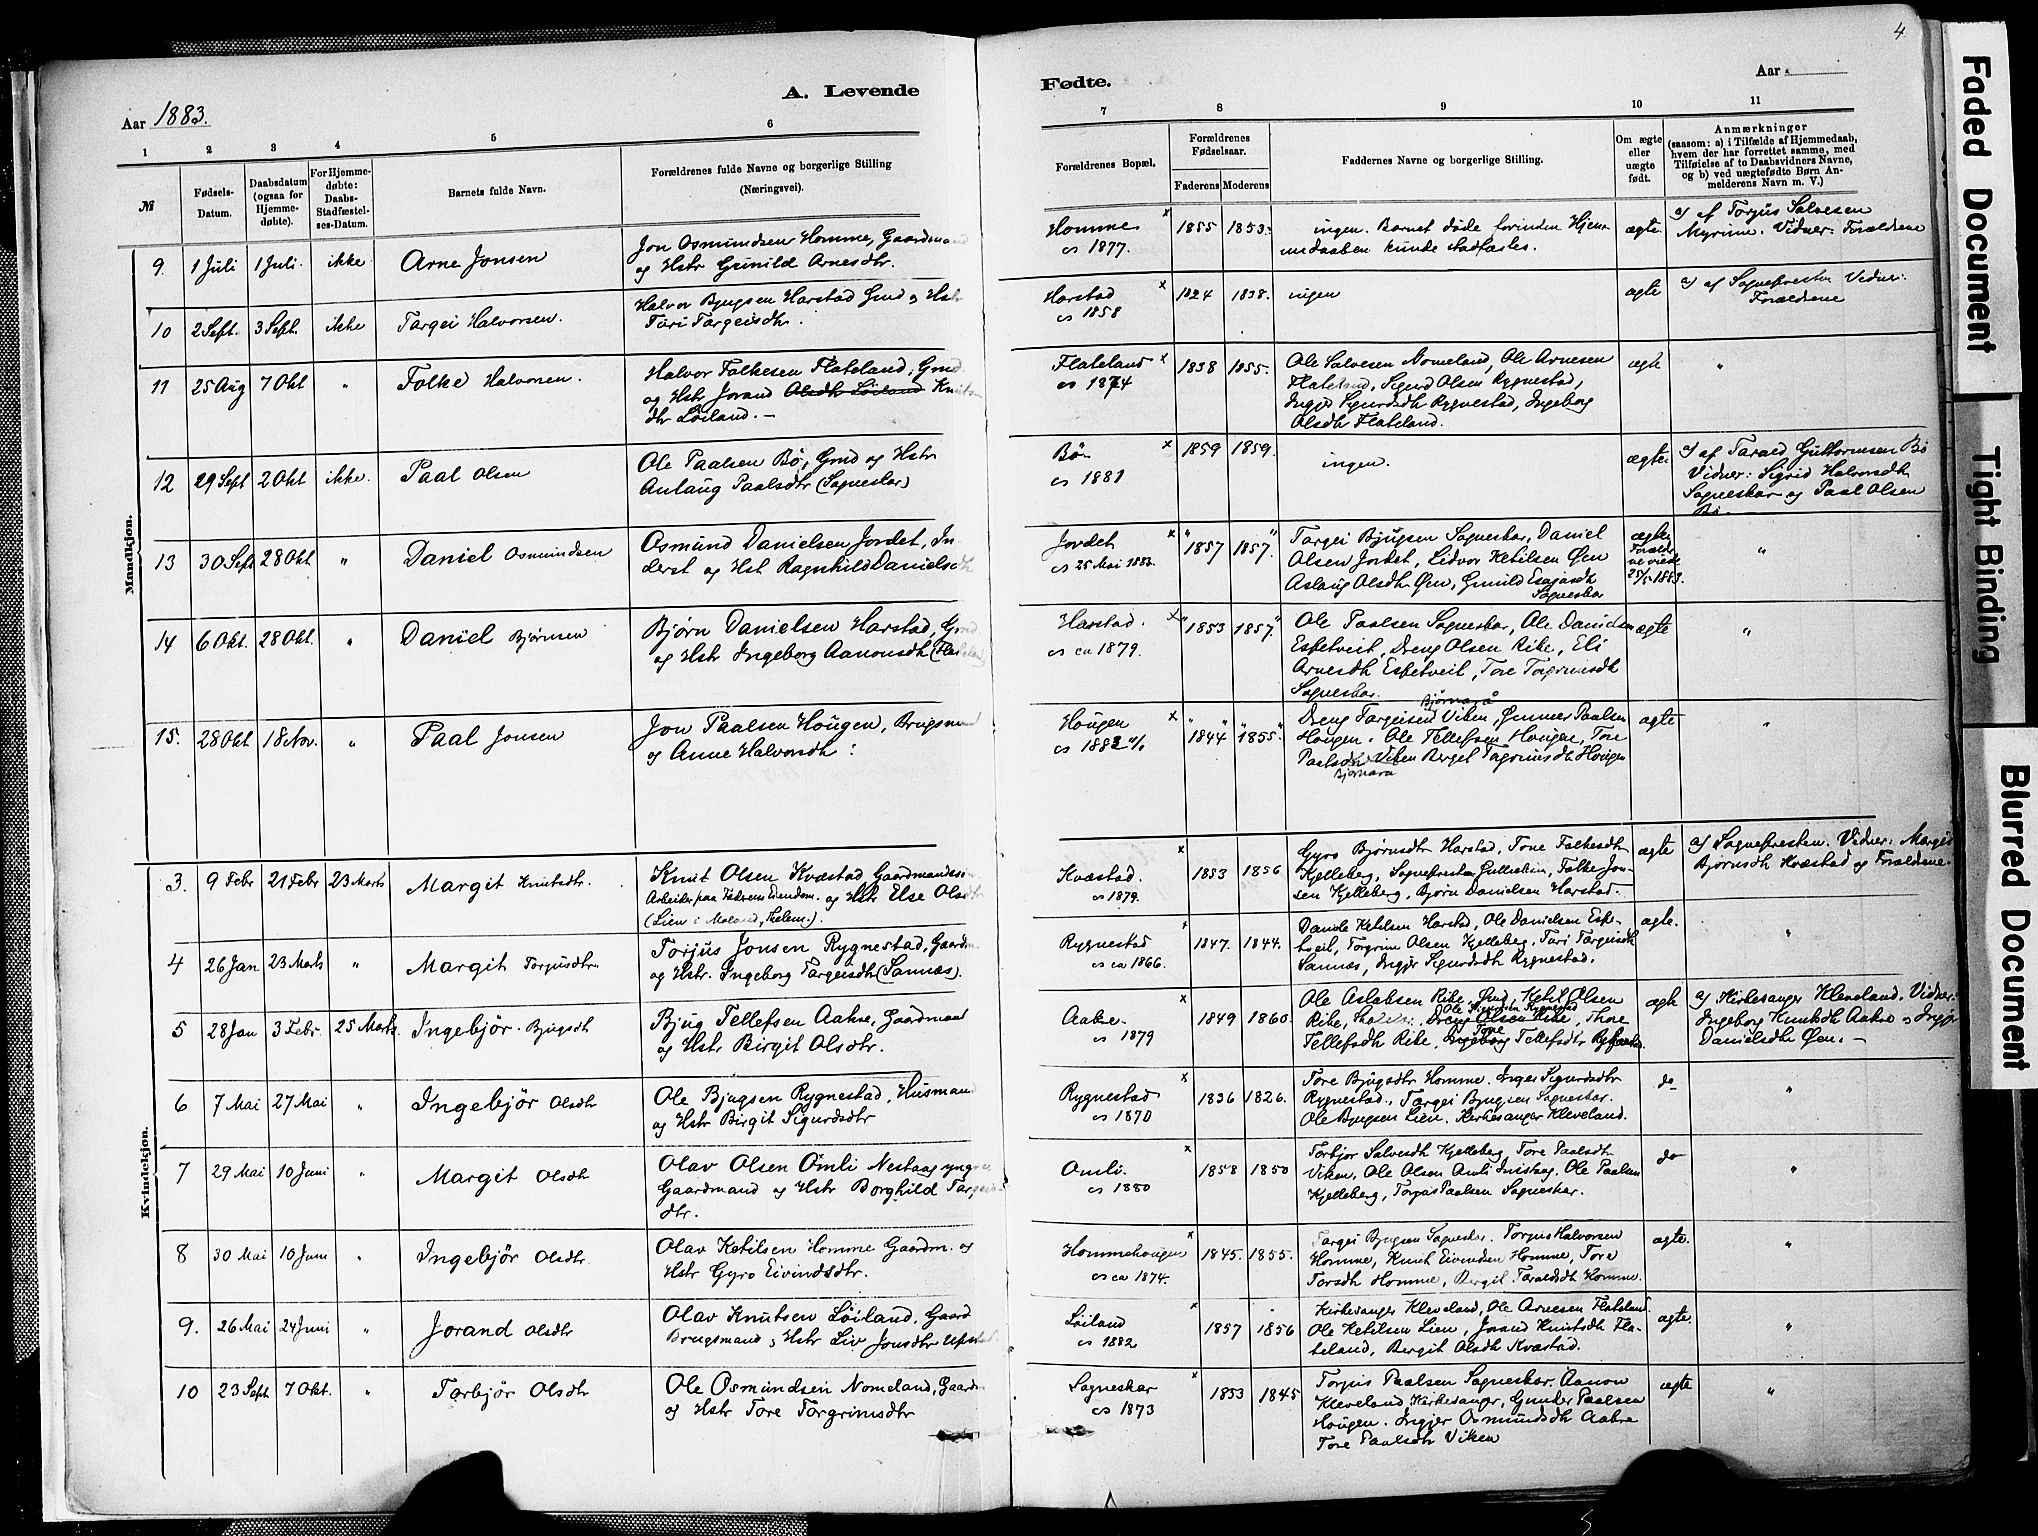 4
Aar 1883.
A. Levende
Fødte.
Aar
1
2
3
4
5
6
7
8
9
10
11
№
Fødsels-
Datum.
Daabsdatum
(ogsaa for
Hjemme-
døbte).
For Hjemme-
døbte:
Daabs-
Stadfæstel-
ses-Datum.
Barnets fulde Navn.
Forældrenes fulde Navne og borgerlige Stilling
(Næringsvei).
Forældrenes Bopæl.
Forældrenes
Fødselsaar.
Faderens
Moderens
Faddernes Navne og borgerlige Stilling.
Om ægte
eller
uægte
født.
Anmærkninger
(saasom: a) i Tilfælde af Hjemmedaab,
hvem der har forrettet samme, med
Tilføielse af to Daabsvidners Navne,
og b) ved uægtefødte Børn An-
melderens Navn m. V.)
Mandkjøn.
9. 1 Juli 1 Juli. ikke Arne Jonsen
Jon Osmundsen Homme, Gaardmand
og Hstr Gunild Arnesdtr.
Homme x
cs 1877.
1855 1853.
ingen. Barnet døde forinden Hjem-
medaaben kunde stadfæstes.
ægte.
a) af Torjus Salvesen
Myrime. Vidner: Forældrene
10 2 Sept. 3 Sept. ikke Targei Halvorsen.
Halvor Bjugsen Harstad Gmd og Hstr
Turi Targeisdtr.
Harstad x
cs 1858
1824 1838.
ingen
ægte
a) af Sognepresten Vidner:
Forældrene
11 25 Aug 7 Okt " Folke Halvorsen.
Halvor Folkesen Flateland, Gmd.
og Hstr Jorand Olsdtr Løiland Knuts-
dtr Løiland. -
Flateland x
cs 1874
1838 1855.
Ole Salvesen Nomeland, Ole Arnesen
Flateland, Sigurd Olsen Rygnestad,
Ingjer Sigurdsdtr Rygnestad, Ingeborg
Olsdtr Flateland.
ægte "
12 29 Sept 2 Okt ikke. Paal Olsen
Ole Paalsen Bø, Gmd og Hstr
Anlaug Paalsdtr (Sagneskar)
Bø x
cs 1881
1859 1859.
ingen.
ægte.
a) af Tarald Guttormsen Bø
Vidner: Sigrid Halvorsdtr
Sagneskar og Paal Olsen
Bø.
13 30 Sept 28 Okt " Daniel Osmundsen
Osmund Danielsen Jordet, In-
derst og Hst Ragnhild Danielsdtr
Jordet x
cs 25 Mai 1883.
"1857 1857."
Targei Bjugsen Sagneskar, Daniel
Olsen Jordet, Lidvor Ketilsen Øen
Aslaug Olsdtr Øen, Gunild Esajasdtr
Sagneskar
ægte,
Forældr-
ne viede
25/5 1883. "
14 6 Okt. 28 Okt. " Daniel Bjørnsen
Bjørn Danielsen Harstad, Gmd
og Hstr Ingeborg Aanonsdtr
Harstad. x
cs ca 1879.
"1853 1857."
Ole Paalsen Sagneskar, Ole Danielsen
Espetveit, Dreng Olsen Rike, Eli
Arnesdtr Espetveit, Tore Torgrimsdtr
Sagneskar.
ægte "
15. 28 Okt 18 Nov. " Paal Jonsen
Jon Paalsen Hougen, Brugsmand
og Anne Halvorsdtr:
Hougen x
cs 1882
1844 1855
Bjørnaraa
Dreng Targeisen Viken, Gunner Paalsen
Hougen. Ole Tellefsen Hougen, Tore
Paalsdtr Viken Berget Tagrimsdtr Hougen
Bjørnara
ægte "
Kvindekjøn.
3. 9 Febr 21 Febr 23 Marts Margit Knutsdtr.
Knut Olsen Kvæstad, Gaardmandssøn
Arbeider paa Faderens Eiendom. og Hstr Else Olsdtr
(Lien i Moland, Telem.).
Kvæstad. x
cs 1879.
1853 1856
Gyro Bjørnsdtr Harstad, Tone Folkesdtr
Kjelleberg, Sognepresten, Folke Jon-
sen Kjelleberg, Bjørn Danielsen Harstad.
ægte
a) Sognepresten. Vidner: Margit
Bjørnsdtr Kvæstad og Forældrene.
4 26 Jan 23 Marts " Margit Torjusdtr
Torjus Jonsen Rygnestad, Gaardm.
og Hstr. Ingeborg Targeisdtr (Sannæs).
Rygnestad x
cs ca 1866.
1847. 1844.
Daniel Ketilsen Harstad, Ole Danielsen Espe-
tveit, Torgrim Olsen Kjelleberg, Turi Targeisdtr
Sannæs, Ingjer Sigurdsdtr Rygnestad.
ægte. "
5 28 Jan 3 Febr. 25 Marts Ingebjør Bjugsdtr
Bjug Tellefsen Aakre, Gaardmand
og Hstr Birgit Olsdtr.
Aakre x
cs 1879
1849 1860.
Ole Aslaksen Rike, Gmd, Ketil Olsen
Rike, Dreng Olsen Rike, Thore
Tellefsdtr Rike, Ingeborg Tore Tellefsdtr
ægte
a) Kirkesanger Kleveland. Vidner:
Ingeborg Knutsdtr Aakre og Ingjer
Danielsdtr Øen. -
6 7 Mai 27 Mai " Ingebjør Olsdtr
Ole Bjugsen Rygnestad, Husmand
og Hstr Birgit Sigurdsdtr
Rygnestad x
cs 1870
1836 1826.
Tore Bjugsdtr Homme. Inger Sigurdsdtr
Rygnestad. Targei Bjugsen Sagneskar.
Ole Bjugsen Lien. Kirkesanger Kleveland.
do "
7 29 Mai 10 Juni " Margit Olsdtr
Olav Olsen Omli Nestaag yngre
Gaardmand og Hstr Borghild Targeis-
dtr.
Omli. x
cs 1880
1858 1850
Torbjør Salvesdtr Kjelleberg, Tore Paalsdtr
Viken, Ole Olsen Omli Instaag, Ole Paalsen
Kjelleberg, Torjus Paalsen Sagneskar.
do "
8 30 Mai 10 Juni " Ingebjør Olsdtr
Olav Ketilsen Homme Gaardm. og
Hstr Gyro Eivindsdtr.
Hommehougen x
cs ca 1874.
1845. 1855.
Targei Bjugsen Sagneskar. Torjus Halvorsen
Homme, Knut Eivindsen Homme, Tore
Torsdtr Homme, Bergit Taraldsdtr Homme.
ægte. "
9. 26 Mai 24 Juni " Jorand Olsdtr
Olav Knutsen Løiland, Gaard
Brugsmand, Hstr Liv Jonsdtr Upstad
Løiland x
cs 1882
1857 1856
Kirkesanger Kleveland, Ole Arnesen Flateland
Ole Ketilsen Lien, Jorand Knutsdtr Fla-
teland, Bergit Olsdtr Kvæstad.
ægte. "
10 23 Sept. 7 Okt. " Torbjør Olsdtr
Ole Osmundsen Nomeland, Gaardm
og Hstr Tore Torgrimsdtr
Sagneskar x
cs 1873
1853 1845
Torjus Paalsen Sagneskar. Aanon
Kleveland Kirkesanger, Gunder Paalsen
Hougen. Ingjer Osmundsdtr Aakre
Tore Paalsdtr Viken
ægte "
Faded Document
Tight Binding
Blurred Document